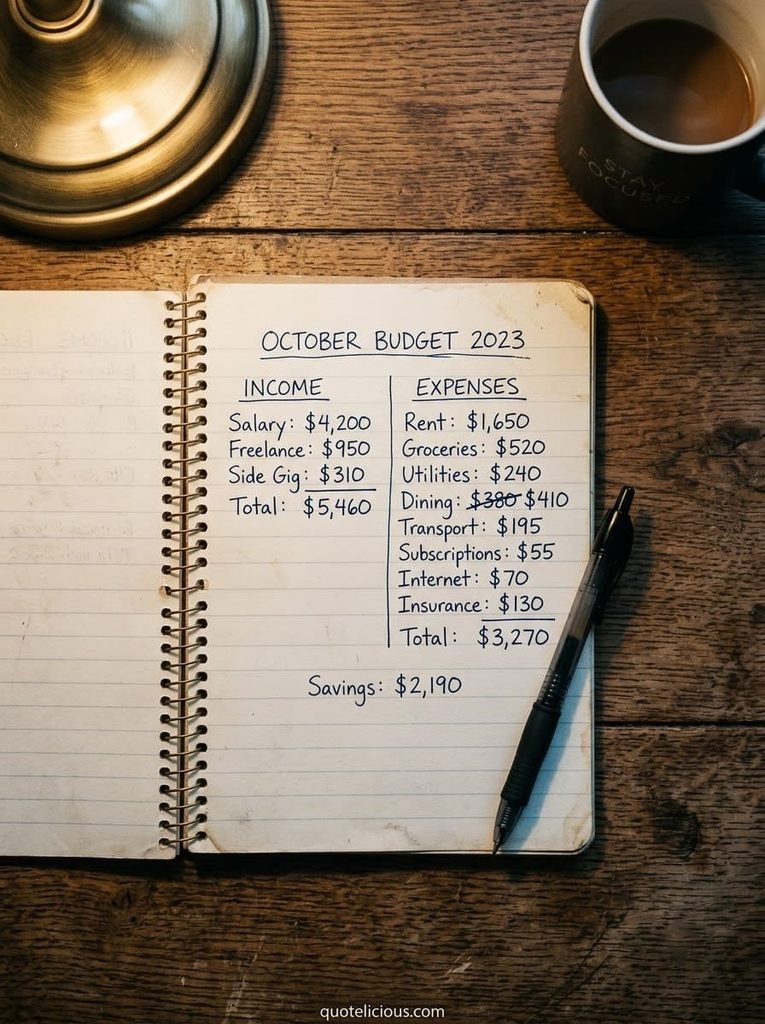 STAY
FOCUSED
OCTOBER BUDGET 2023
INCOME
Salary: $4,200
Freelance: $950
Side Gig: $310
Total: $5,460
EXPENSES
Rent: $1,650
Groceries: $520
Utilities: $240
Dining: $380 $410
Transport: $195
Subscriptions: $55
Internet: $70
Insurance: $130
Total: $3,270
Savings: $2,190
quotelicious.com